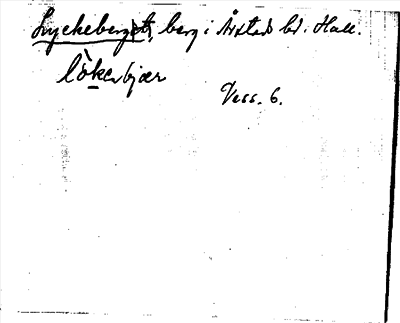 Lyckeberget, berg i Årstads hd. Hall.
lökerbjær
Vess. 6.